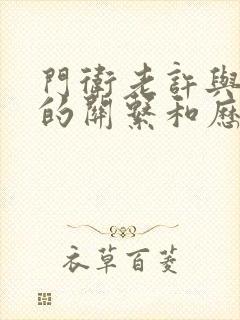 門衛老許與
的關繫和歷
衣草百菱